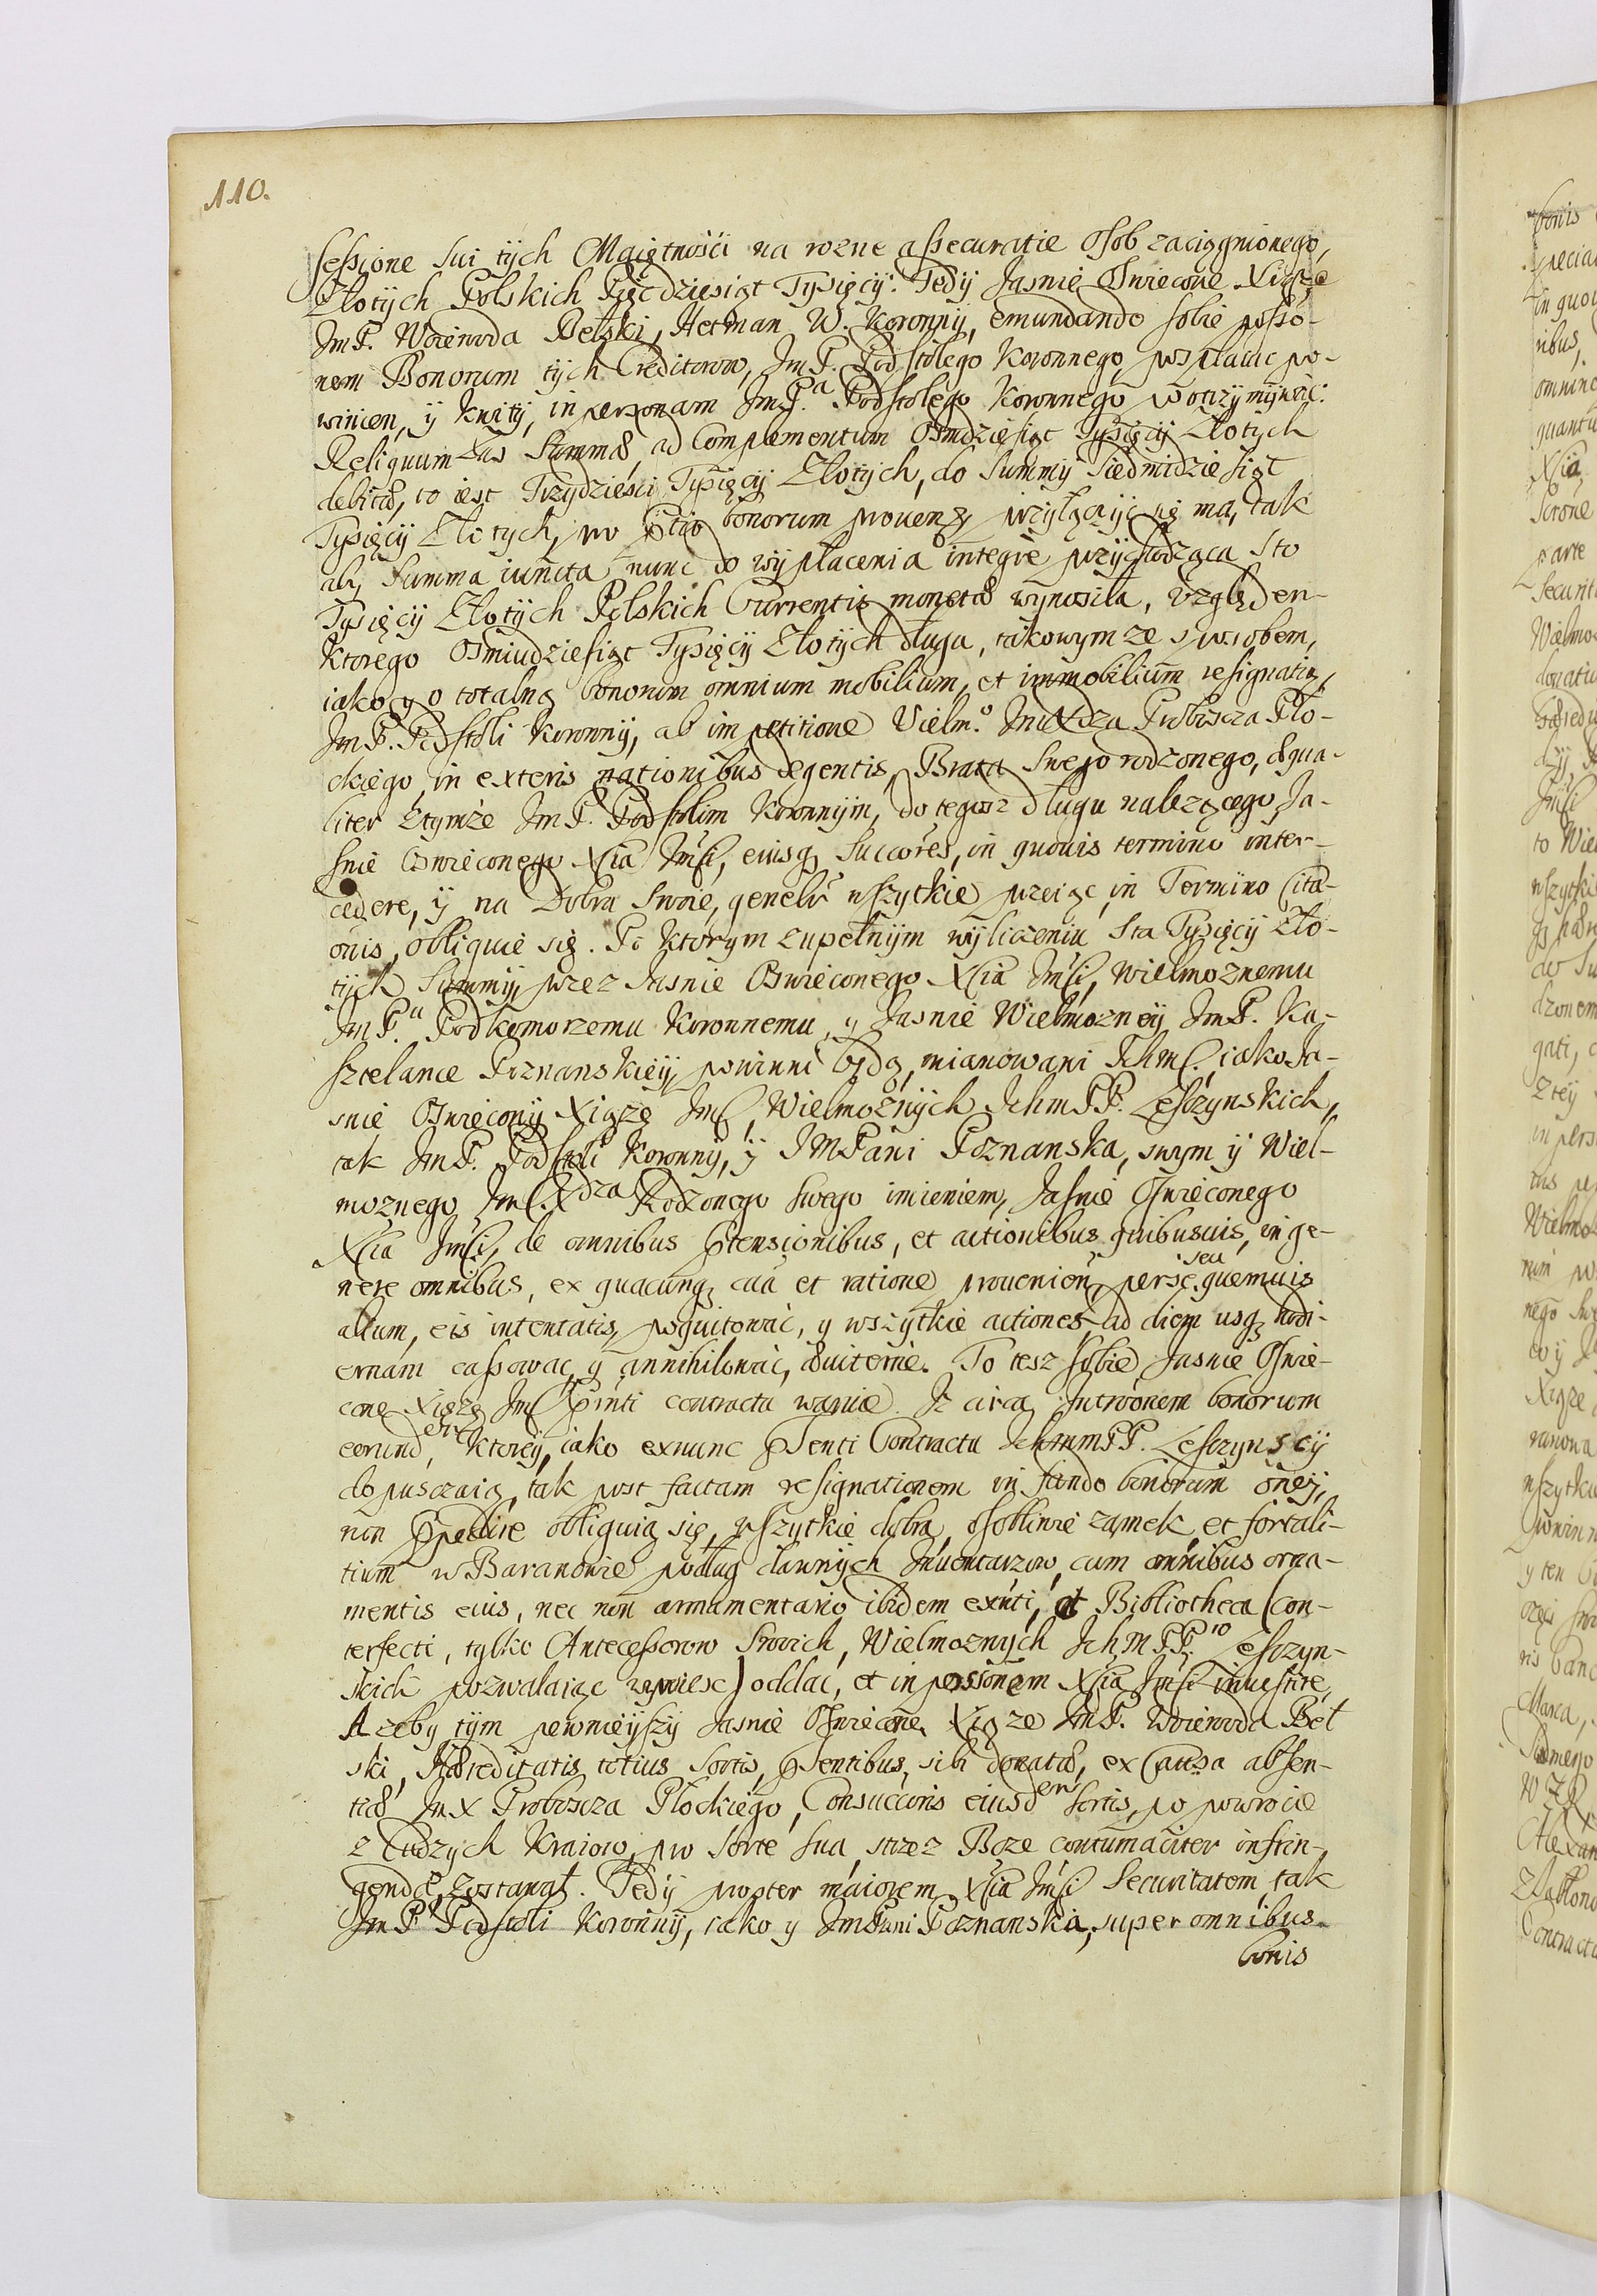 110.
sessione sui tych Maiętnośći na rozne assecuratie Osob zaciągnionego,
Złotych Polskich Pięcdziesiąt Tysięcy: Tedy Jasnie Oswiecone Xiąże
JmP. Woiewoda Bełzki, Hetman W. Koronny, emundando sobie posso-
nem Bonorum tych Creditorow, JmP. Podstolego Koronnego pospłacac po-
winien, y kwity, in personam JmP.a Podstolego Koronnego pootrzymywać:
Reliquum zas Summæ, ad Complementum Osmdziesiąt Tysięcy Złotych
debitæ, to iest Trzydziesci Tysięcy Złotych, do Summy Siedmidziesiąt
Tysięcy Złotych, pro ptio bonorum prouenq przyłączyć się ma, tak
aby Summa iuncta nunc do wypłacenia integre przychodząca Sto
Tysięcy Złotych Polskich Currentis monetæ wynosiła, Względen-
ktorego Osmiudziesiąt Tysięcy Złotych długu, takowymze sposobem,
iako y o totalną bonorum omnium mobilium, et immobilium resignatią,
JmP. Podstoli Koronny, ab impetitione Wielm.o Jmć Xdza Proboscza Pło-
ckiego, in exteris nationibus degentis, Brata Swego rodzonego, æqua-
liter Ztymże JmP. Podstolim Koronnym, do tegosz długu nalezącego, Ja-
snie Oswieconego Xcia Jmsci, eiusq Succores, in quouis termino inter-
cedere, y na Dobra Swoie, genelr wszytkie przeiąc in Termino Cita-
onis, obliguie się. Po ktorym zupełnym wyliczeniu Sta Tysięcy Zło-
tych Summy, przez Jasnie Oswieconego Xcia Jmsci, Wielmoznemu
JmP.u Podkomorzemu Koronnemu, y Jasnie Wielmozney JmP. Ka-
sztelance Poznanskiey, powinni będą, mianowani Ichmsc. iako Ja-
snie Oswiecony Xiąze Jmsc, Wielmożnych IchmPP. Lesczynskich,
tak JmP. Podstoli Koronny, y JMPani Poznanska, swym y Wiel-
moznego Jmsc. Xdza Rodzonego Swego imieniem, Jasnie Oswieconego
Xcia Jmsci, de omnibus ptensionibus, et actionibus quibusuis, in ge-
nere omnibus, ex quacunq caa et ratione prouenien, perse seu quemuis
alium, eis intentatis, poquitować, y wszytkie actiones ad diem usq hodi-
ernam cassowac, y annihilować, æuiternie. To tesz sobie Jasnie Oswie-
cone Xiąze Jmsc pnti contractu waruie. Iz circa Introonem bonorum
eorundem, ktorey, iako exnunc psenti Contractu IchmmPP. Lesczynscy
dopusczaią, tak post factam resignationem in fundo bonorum oney,
non ppedire obliguią się, wszytkie dobra, osobliwie zamek, et fortali-
tium w Baranowie podług dawnych Inuentarzow, cum omnibus orna-
mentis eius, nec non armamentario ibidem exnti, et Bibliotheca (con-
terfecti, tylko Antecessorow Swoich, Wielmoznych IchMPP.ow Lesczyn-
skich pozwalaiąc wywiesc) oddać, et in possionem Xcia Jmsci inuestire,
Azeby tym pewnieyszy Jasnie Oswiecone Xiąze JmP. Woiewoda Bełz
ski, Hæreditatis totius Sortis, psentibus sibi donatæ, ex Causa absen-
tiæ JmX Proboscza Płockiego, Consuccoris eiusdem Sortis, po powrocie
z Cudzych Kraiow, pro sorte sua, strzez Boze contumaciter infrin-
gendæ, zostawał. Tedy propter maiorem Xcia Jmsci Securitatem, tak
JmP. Podstoli Koronny, iako y JmPani Poznanska, super omnibus
bonis